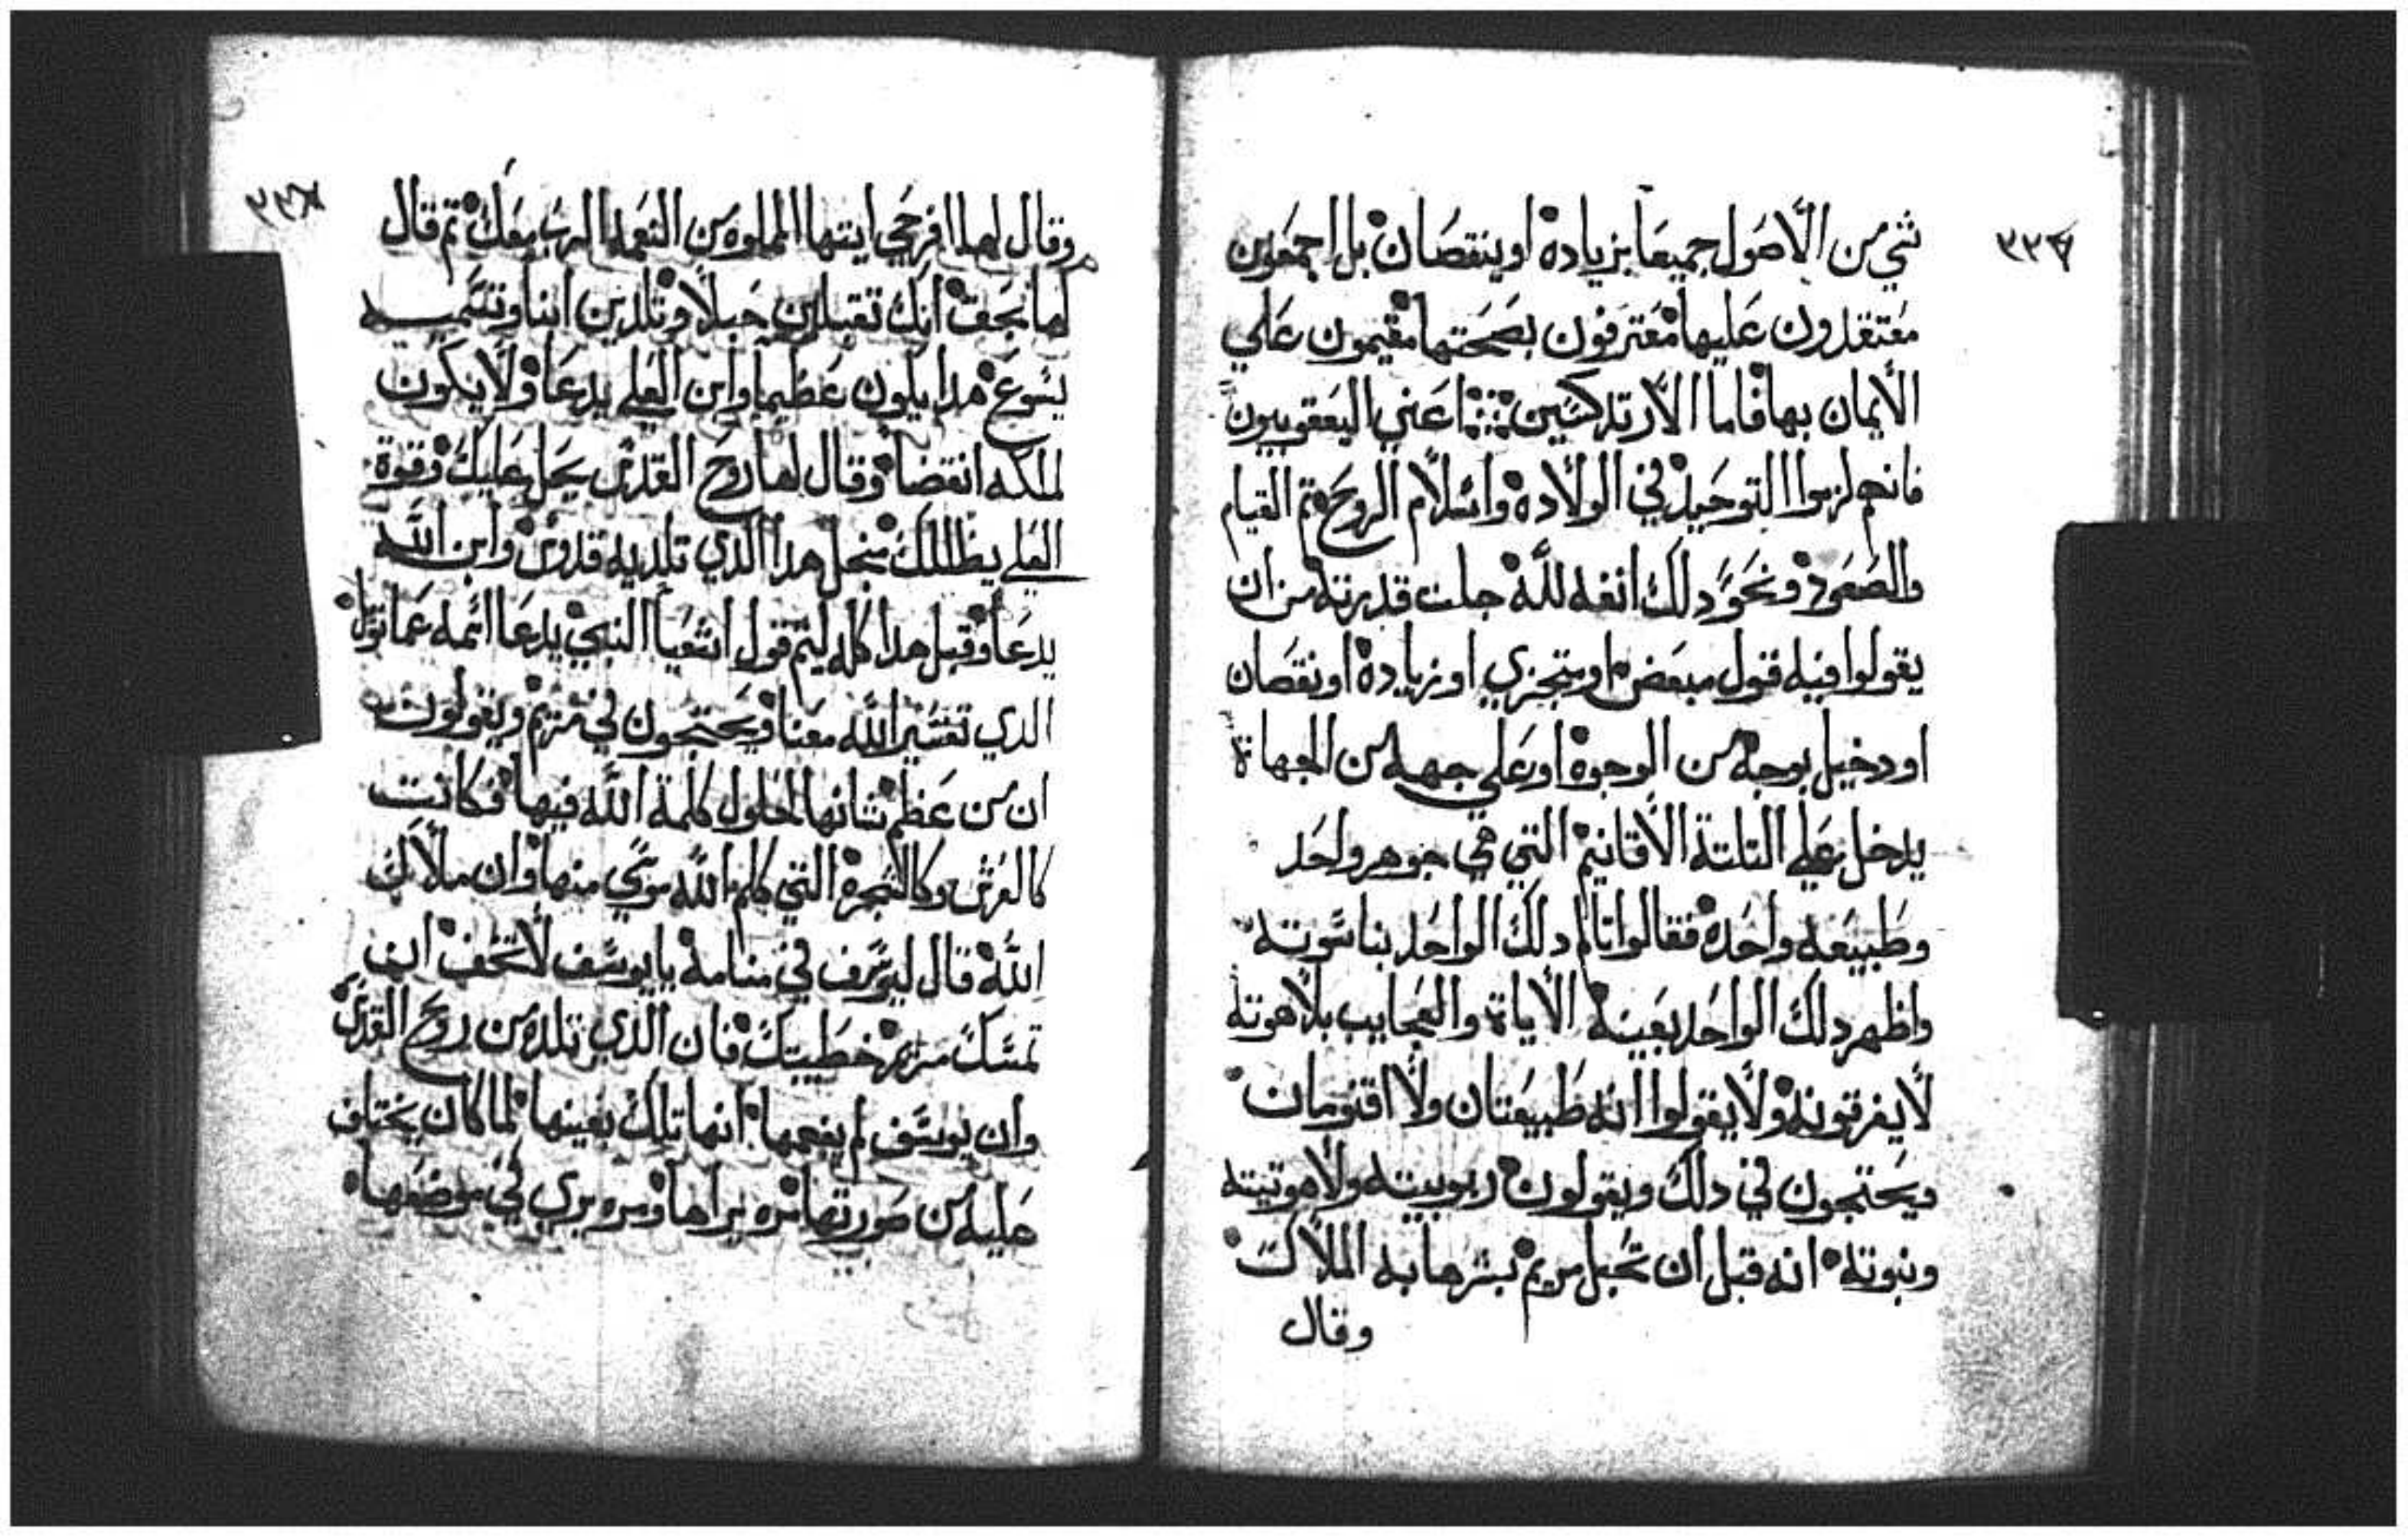 ٣٣٧
شي من الاصول جميعا بزياده او ينتقصان بل اجمعون
معتقدون عليها معترفون بصحتها مقيمون علي
الايمان بها فاما الارتدكسين اعني اليعقوبيون
فانهم لزموا التوحيد في الولاده واسلام الروح تم القيام
والصعود ونحو دلك انفه لله جلت قدرته من ان
يقولوا فيه قول مبعض او متجزي او زياده او نقصان
او دخيل بوجه من الوجوه او علي جهه من الجهاة
يدخل علي التلتة الاقانيم التي هي جوهر واحد
وطبيعه واحده فقالوا تالم دلك الواحد بناسوته
واظهر دلك الواحد بعينه الاياة والعجايب بلاهوته
لا يفرقونه ولا يقولوا انه طبيعتان ولا اقنومان
ويحتجون في دلك ويقولون ربوبيته ولاهوتيته
وبنوته انه قبل ان تحبل مريم بشرها به الملاك
وقال
٣٣٨
وقال لها افرحي ايتها المملوه من النعمه الرب معك تم قال
لها تخف انك تقبلين حبلا وتلدين ابنا وتسميه
يسوع هدا يكون عظيما وابن العلي يدعا ولا يكون
لملكه انقضا وقال لها روح القدس يحل عليك وقوة
العلي يظللك منجل هدا الدي تلديه قدوس وابن الله
يدعا وقبل هدا كله ليتم قول اشعيا النبي يدعا اسمه عمانويل
الدي تفسير الله معنا ويحتجون في مريم ويقولون
ان من عظم شانها لحلول كلمة الله فيها فكانت
كالعرش وكالشجره التي كلم الله موسي منها وان ملاك
الله قال ليوسف في منامه يا يوسف لا تخف ان
تمسك مريم خطيبتك فان الدي تلده من روح القدس
وان يوسف لم يفهمها انها تلك بعينها لما كان يختلف
عليه من صورتها مره يراها ومره يري في موضعها